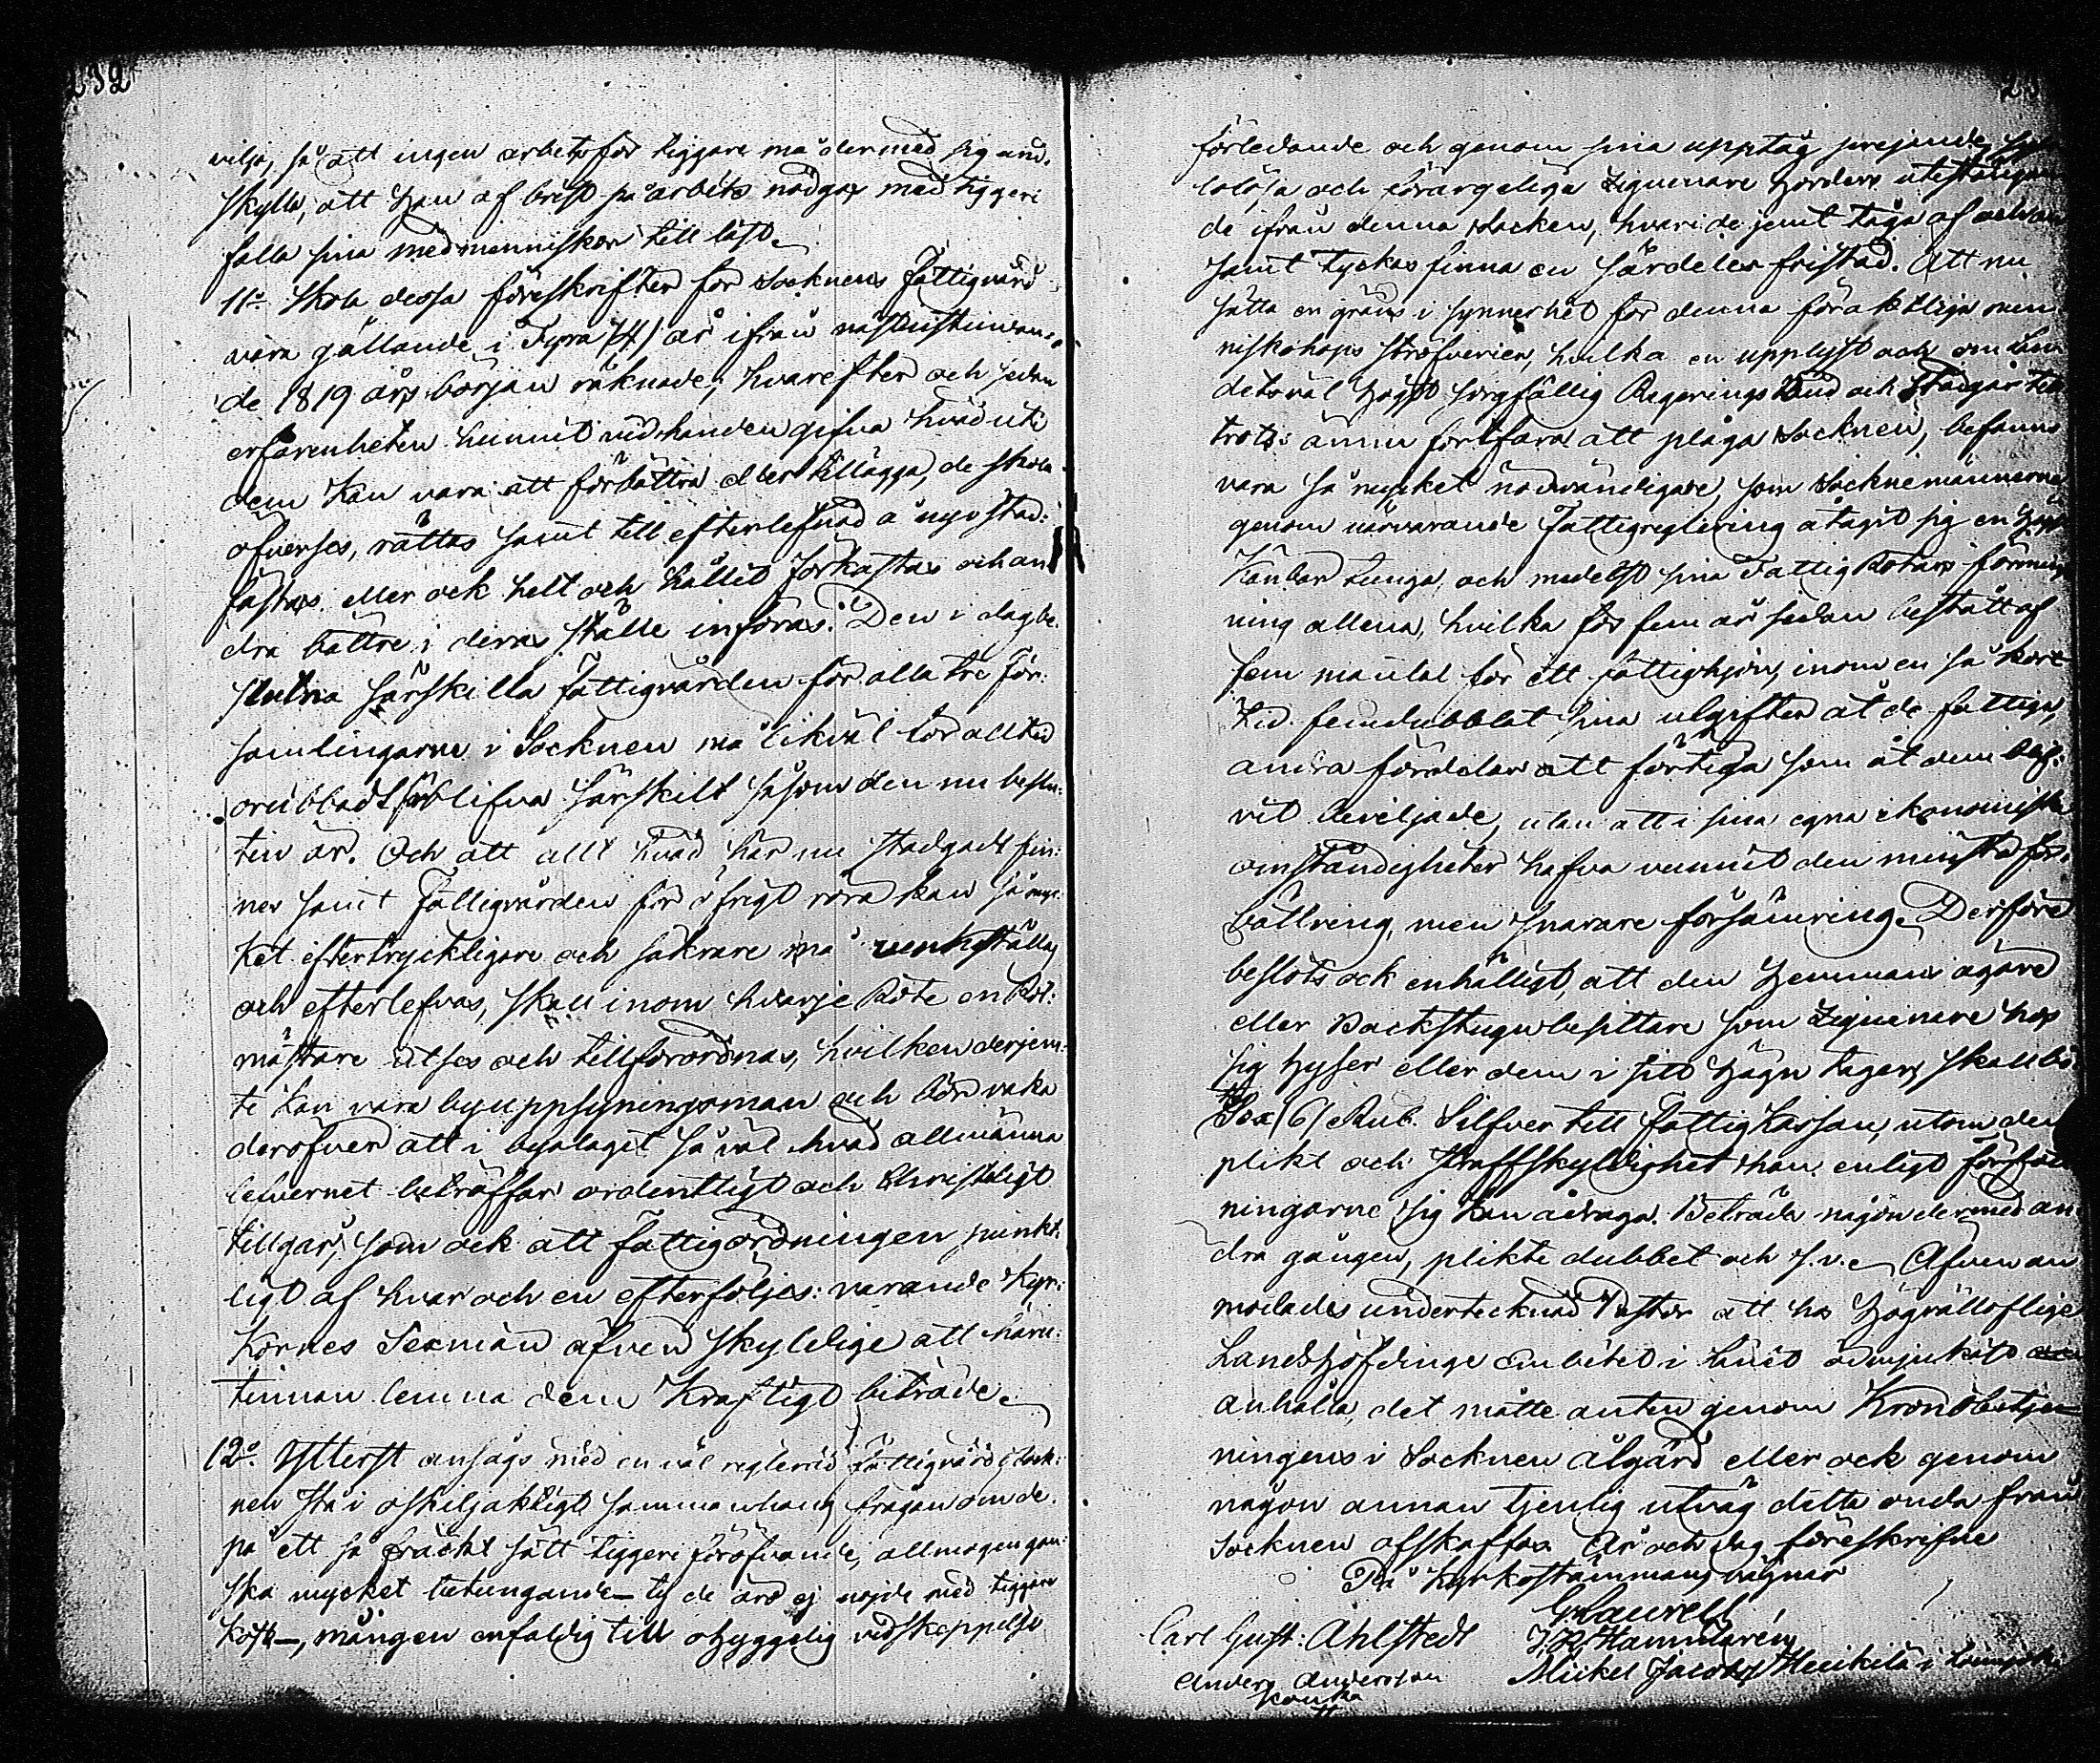 292
vilja, så att ingen arbetsför tiggare må dermed sig und,
skylla, att han af brist på arbete nödgas med tiggeri
falla sina medmenniskor till last.
11o. Skola dessa föreskrifter for Socknens Fattigvård
vara gällande i Fyra /4/ år ifrån nästinstundan,
de 1819 års början räknade; hvarefter och sedan
erfarenheten hunnit vid handen gifva hvad uti
dem kan vara att förbättra eller tillägga, de skola
öfverses, rättas samt till efterlefnad å nyo stad:
fästas eller ock helt och hållit förkastas och an
dra bättre i deras ställe införas. Den i dag be,
slutna särskilla Fattigvården för alla tre För:
samlingarne i Socknen må likväl för alltid
orubbadt förblifva särskilt såsom den nu beslu:
tin är. Och att allt hvad här nu stadgadt fin:
nes samt Fattigvården för öfrigt röra kan så myc:
ket eftertryckligare och säkrare må verkställas
och efterlefvas, skall inom hvarje Rote en Rot:
mästare utses och tillförordnas, hvilken derjem:
te kan vara byuppsyningsman och bör vaka
deröfver att i byalaget så väl hvad allmänna
lefvernet beträffar ordentligt och Christeligt
tillgår, som ock att fattigordningen punkt:
ligt af hvar och en efterföljes: varande Kyr:
kornes Sexmän äfven skyldige att häru:
tinnan lemna dem kraftigt biträde.
12o. Ytterst ansågs med en väl reglerad Fattigvård i Sock:
nen stå i oskiljaktligt sammanhang frågan om de
på ett så fräckt sätt tiggeri föröfvande, allmogen gan:
ska mycket betungande – ty de äro ej nöjde med tiggare
kost –, mången enfaldig till ohyggelig vidskeppelse
förledande och genom sina upptåg prejande,
lolösa och förargeliga Ziguenare horders utestängan
de ifrån denna Socken, hvari de jemt tåga af och an
samt tyckas finna en särdeles fristad. Att nu
sätta en gräns i synnerhet för denna föraktliga men
niskohops ströfverier, hvilka en upplyst och om lan
dets väl högst sorgfällig Regerings bud och stadgar till
trots ännu fortfara att plåga Socknen, befanns
vara så mycket nödvändigare, som Socknemännerne
genom närvarande Fattigreglering åtagit sig en högst
känbar tunga, och medelst sina Fattig Rotars förmin
ning allena, hvilka för fem år sedan bestått af
fem mantal för ett fattighjon, inom en så kort
tid femdubblat sina utgifter åt de fattiga,
andra fördelar att förtiga som åt dem blif:
vit beviljade, utan att i sina egna ekonomiska
omständigheter hafva vunnit den minsta för:
bättring, men snarare försämring. Derföre
beslöts ock enhälligt, att den Hemmans ägare
eller Backstugubesittare som Ziguenare hos
sig hyser eller dem i sitt hägn tager, skall bö
ta Sex /6/ Rub. Silfver till Fattig Kassan, utom den
plikt och straffskyldighet han enligt författ
ningarne sig kan ådraga. Beträdes någon dermed an
dra gången, plikte dubbelt och s. v. Äfven an
modades undertecknad Pastor att hos Högvälloflige
Landshöfdinge Embetet i Länet ödmjukast
anhålla, det måtte anten genom Kronobetje
ningens i Socknen åtgärd eller ock genom
någon annan tjenlig utväg detta onda från
Socknen afskaffas. År och dag föreskrifne
På Kyrkostämmans vägnar
G. Laurell
Carl Gust: Ahlstedt J. R. Hammarén
Anders Andersson Mickel Jacobss Heikilä i
Kouka